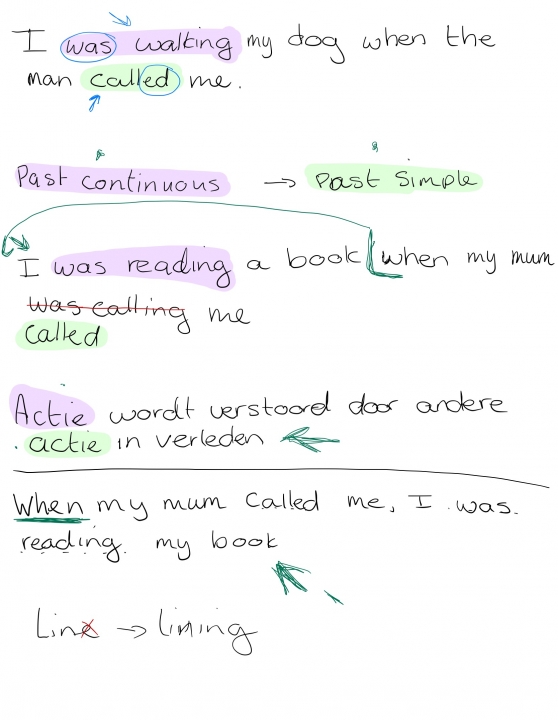 I was walking my dog when the
man called me.
Past continuous → Past Simple
I was reading a book when my mum
was calling me
called
Actie wordt verstoord door andere
actie in verleden
When my mum called me, I was
reading my book
Line → lining